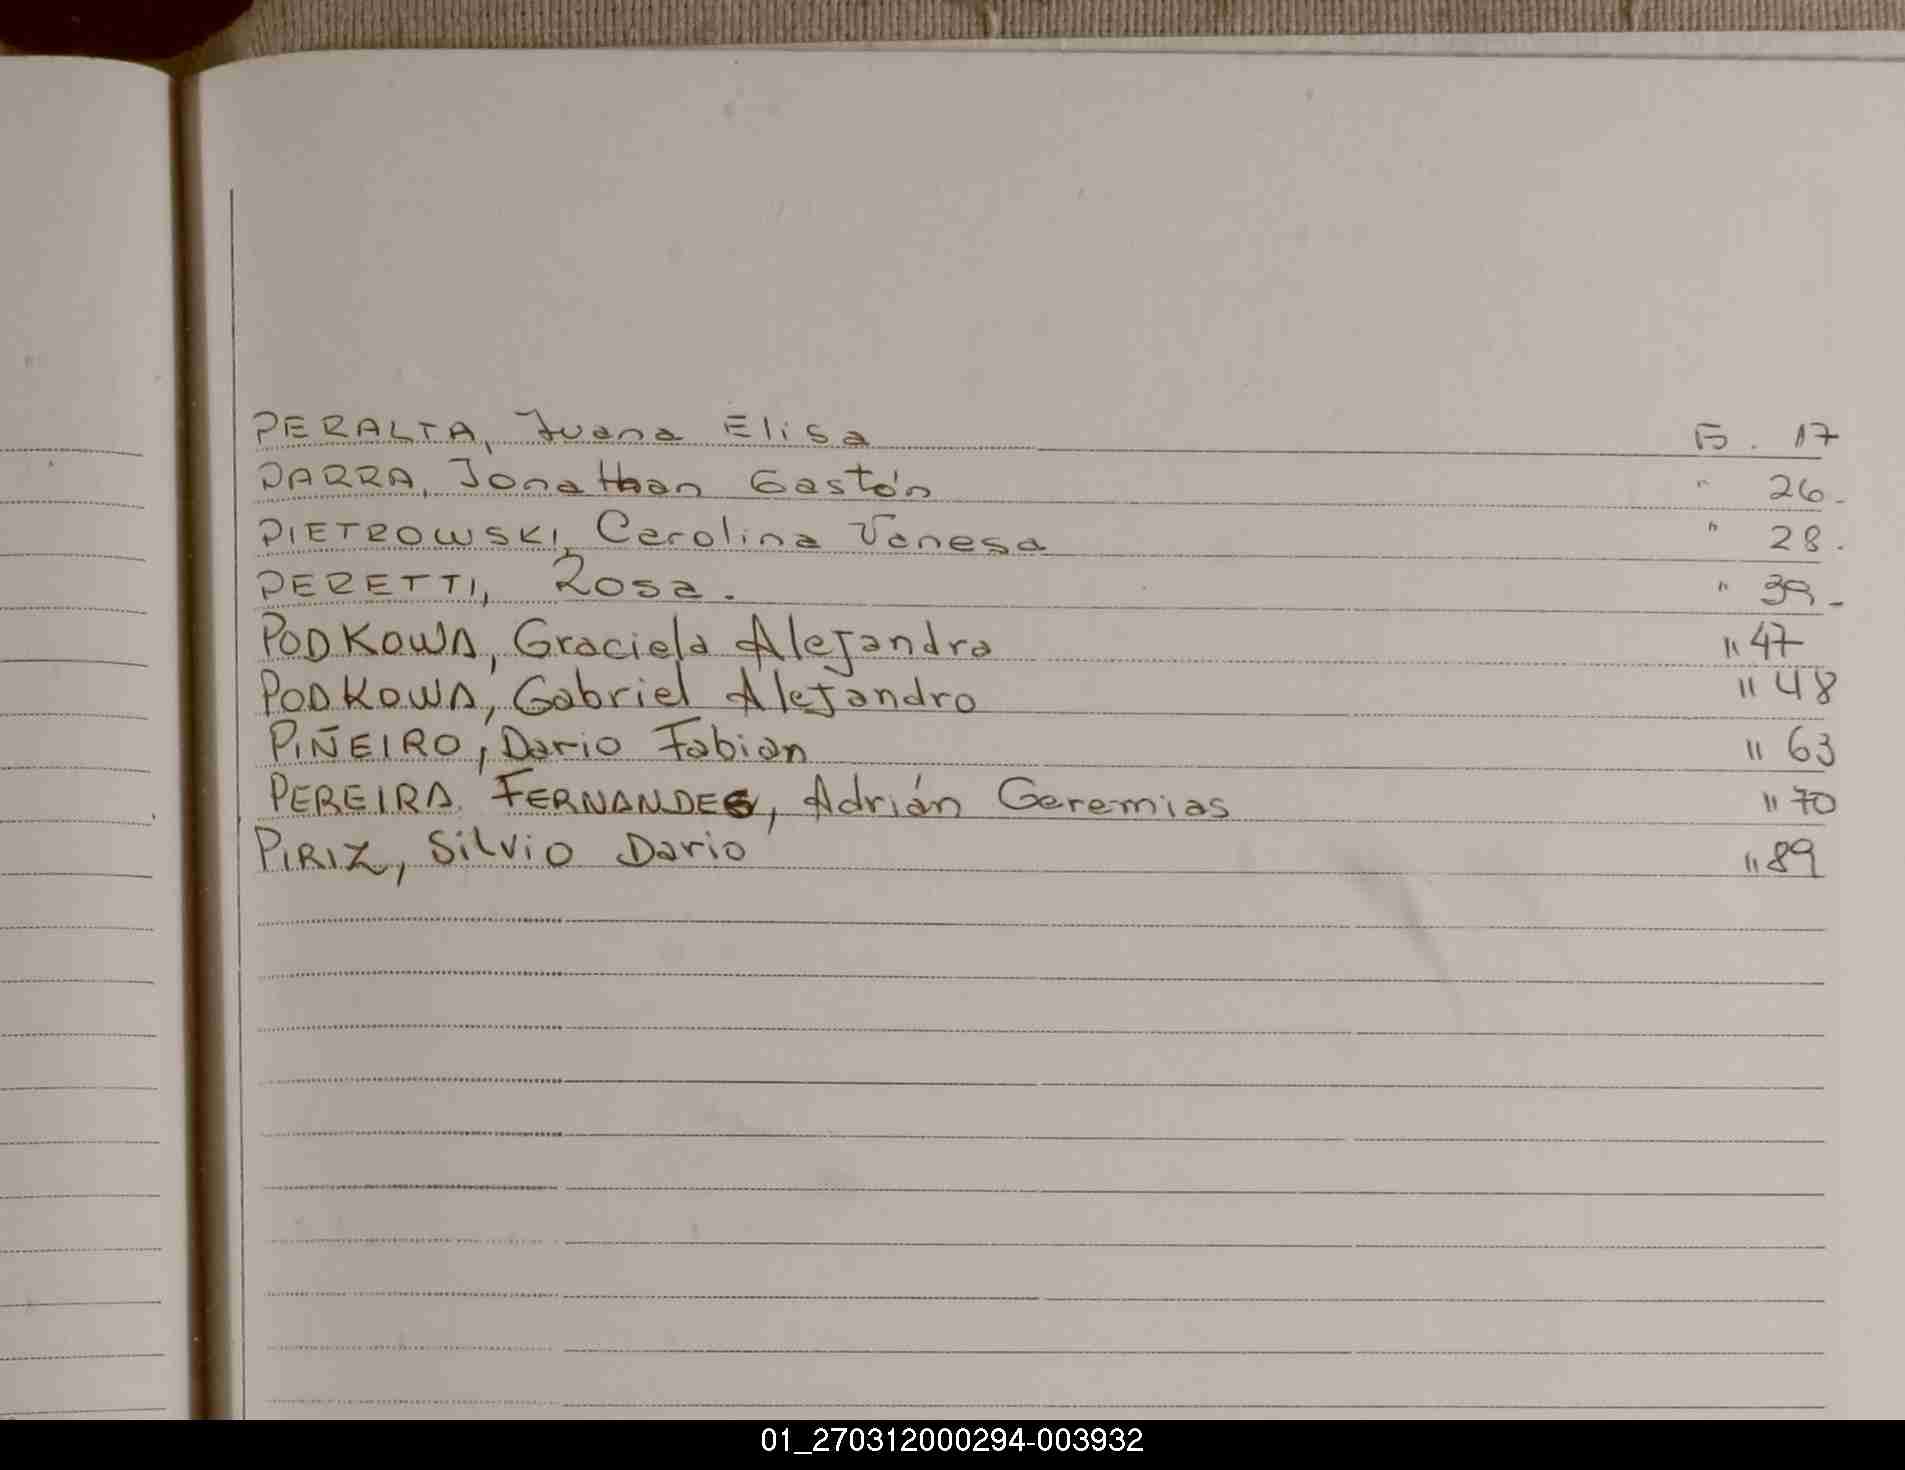 PERALTA, Juana Elisa Fs. 17
PARRA, Jonathan Gastón " 26.
PIETROWSKI, Carolina Vanesa " 28.
PERETTI, Rosa. " 39.
PODKOWA, Graciela Alejandra " 47
PODKOWA, Gabriel Alejandro " 48
PIÑEIRO, Dario Fabian " 63
PEREIRA FERNANDES, Adrián Geremias " 70
PIRIZ, Silvio Dario " 89
01_270312000294-003932